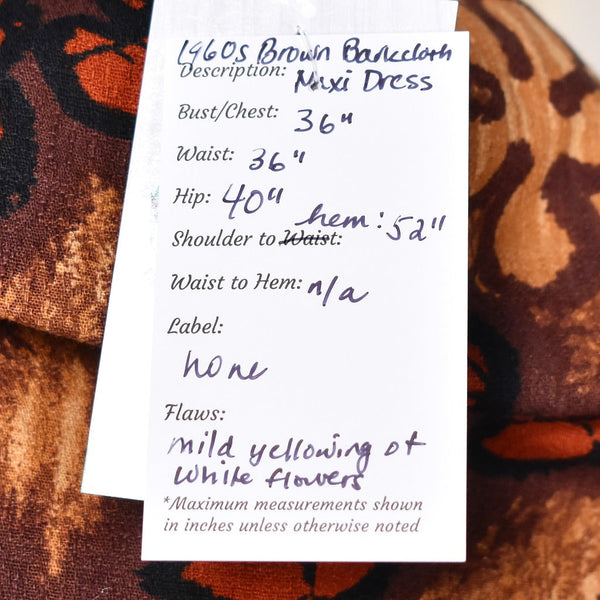 1960s Brown Barkcloth
Description: Maxi Dress
Bust/Chest: 36"
Waist: 36"
Hip: 40"
Shoulder to Waist: hem: 52"
Waist to Hem: n/a
Label:
none
Flaws:
mild yellowing of
white flowers
*Maximum measurements shown
in inches unless otherwise noted